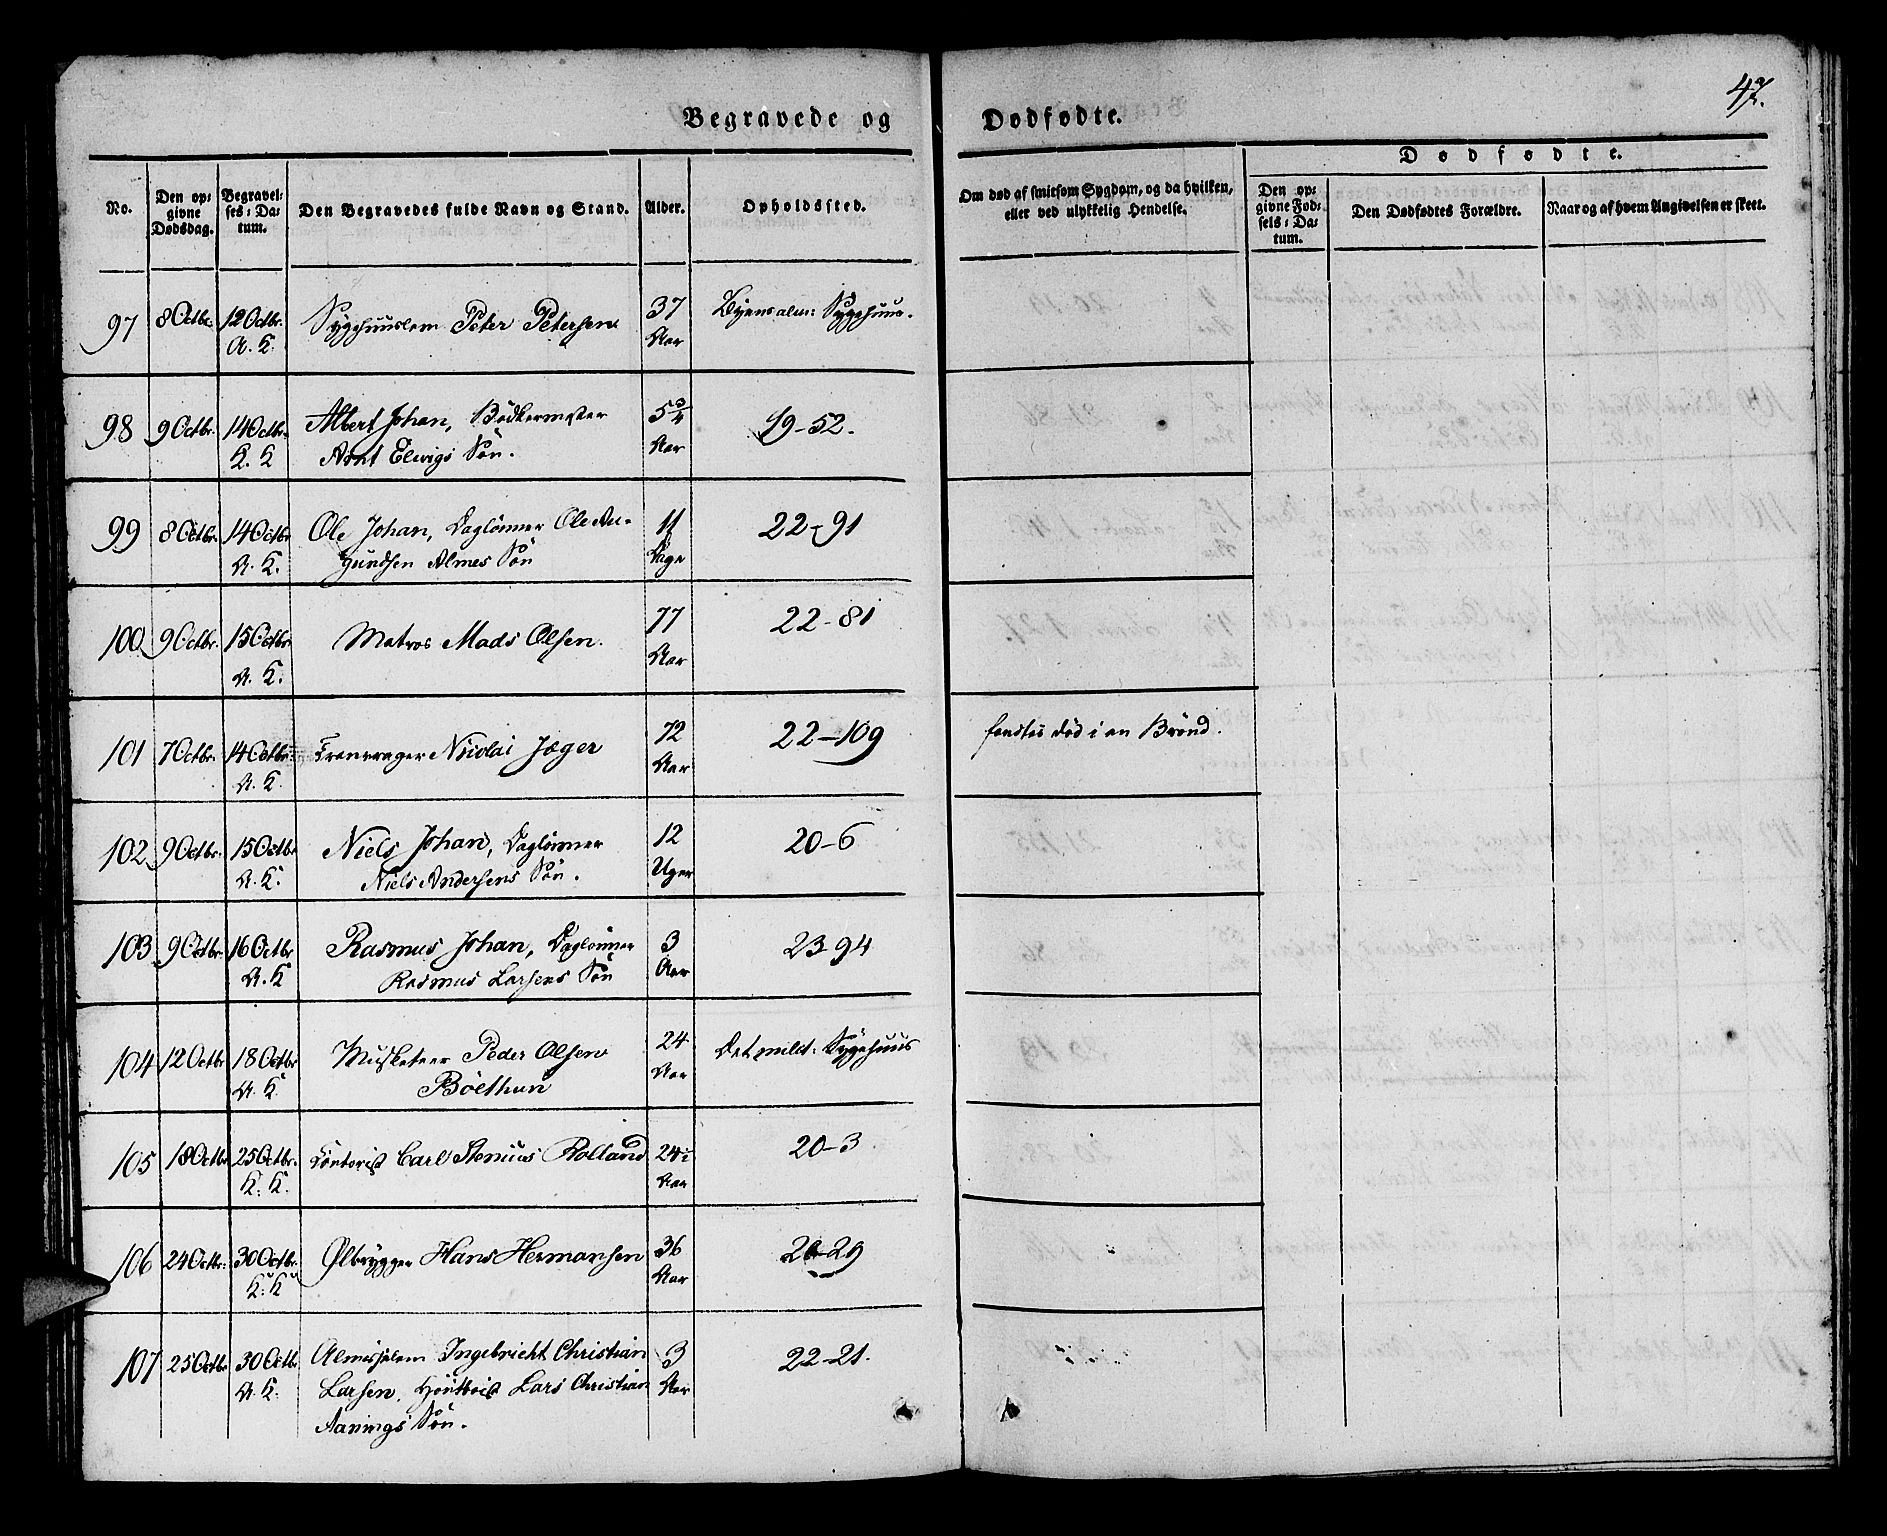 47.
Begravede og Dødfødte.
No.
Den op-
givne
Dødsdag.
Begravel-
ses-Da-
tum.
Den Begravedes fulde Navn og Stand.
Alder.
Opholdssted.
Om død af smitsom Sygdom, og da hvilken,
eller ved ulykkelig Hendelse.
Dødfødte.
Den op-
givne Fød-
sels-Da-
tum.
Den Dødfødtes Forældre.
Naar og af hvem Angivelsen er skeet.
97 8 Octbr. 12 Octbr. Sygehuuslem Peter Petersen 37 Byens alm: Sygehuus.
A. K. Aar
98 9 Octbr. 14 Octbr. Albert Johan, Bødkermester 5 3/4 19-52.
K. K Arnt Elvigs Søn. Aar
99 8 Octbr. 14 Octbr Ole Johan, Daglønner Ole 11 22-91
A. K. Almes Søn Dage
100 9 Octbr. 15 Octbr Matros Mads Olsen. 77 22-81
A. K. Aar
101 7 Octbr. 14 Octbr. Nicolai Jæger 72 22-109 fandtes død i en Brønd.
A. K. Aar
102 9 Octbr. 15 Octbr Niels Johan, Daglønner 12 20-6
A. K. Niels Andersens Søn. Uger
103 9 Octbr. 16 Octbr Rasmus Johan, Daglønner 3 23-94
A. K Rasmus Larsens Søn Aar
104 12 Octbr 18 Octbr Musketeer Peder Olsen 24 Det milit: Sygehuus
A. K. Böethun Aar
105 18 Octbr 25 Octbr. Contorist Carl Stenius Rolland 24 20-3
K. K. Aar
106 24 Octbr. 30 Octbr. Ølbrygger Hans Hermansen 36 20-29
K. K Aar
107 25 Octbr 30 Octbr Ingebricht Christian 3 22-21.
A. K. Larsen, Houtboist Lars Christian Aar
Aanings Søn.